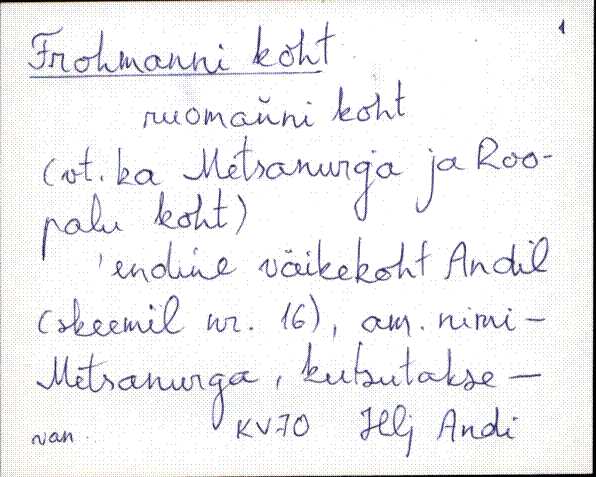 1
Frohmanni koht
ruoman̆ni koht
(vt. ka Metsanurga ja Roo-
palu koht)
'endine väikekoht Andil
(skeemil nr. 16), am. nimi -
Metsanurga, kutsutakse -
van. KV70 Hlj Andi